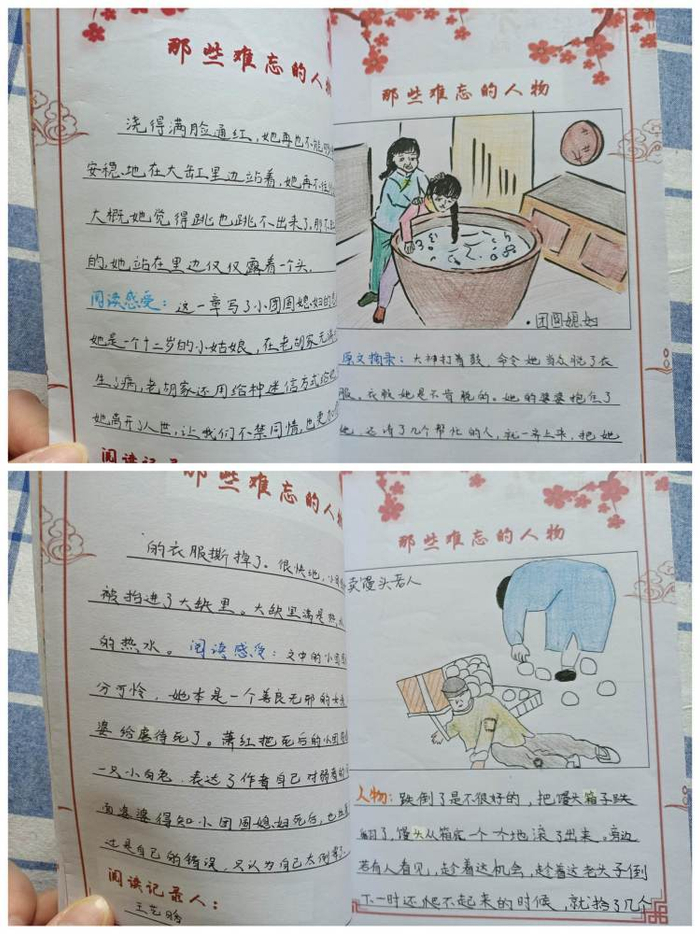 那些难忘的人物
浇得满脸通红,她再也不能
安稳地在大缸里边站着,她再不
大概她觉得跳也跳不出来了,那
的,她站在里边仅仅露着一个头。
阅读感受:这一章写了小团圆媳妇的
她是一个十二岁的小姑娘,在老胡家无
生了病,老胡家还用给种迷信方式给
她离开了人世,让我们不禁同情,也
阅读记
那些难忘的人物
·团圆媳妇
原文摘录:大神打着鼓,命令她当众脱了衣
服。衣服她是不肯脱的。她的婆婆抱住了
她,还请了几个帮忙的人,就一齐上来,把她
那些难忘的人物
的衣服撕掉了。很快地,小
被抬进了大缸里。大缸里满是热
的热水。阅读感受:文中的小团
分可怜,她本是一个善良无邪的
婆给虐待死了。萧红把死后的小团
一只小白兔,表达了作者自己对弱
而婆婆得知小团圆媳妇死后,也
过是自己的错误,只认为自己太倒霉
阅读记录人:
王艺
那些难忘的人物
卖馒头老人
人物:跌倒了是不很好的,把馒头箱子跌
翻了,馒头从箱底一个个地滚了出来。旁边
若有人看见,趁着这机会,趁着这老头子倒
下一时还爬不起来的时候,就拾了几个